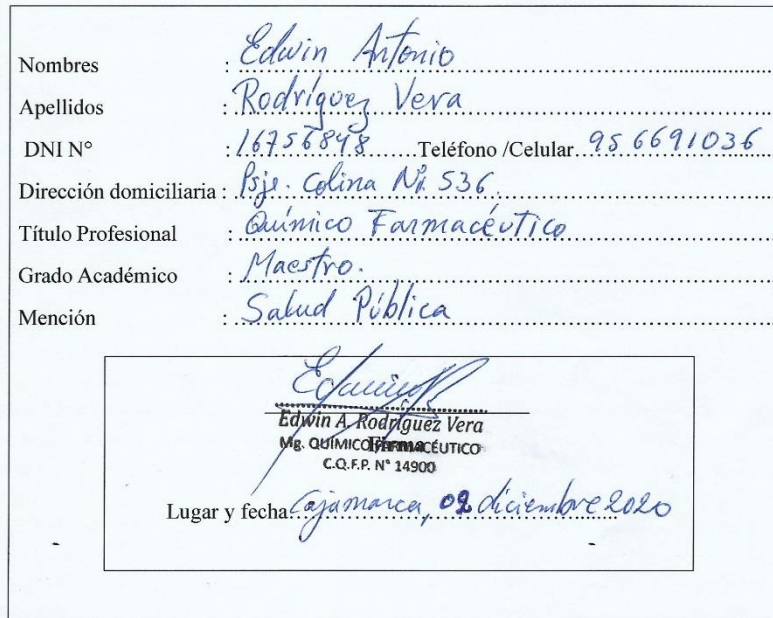 Nombres : Edwin Antonio
Apellidos : Rodríguez Vera
DNI N° : 16756848 Teléfono /Celular 956691036
Dirección domiciliaria : Psje. Colina Nº. 536.
Título Profesional : Químico Farmacéutico
Grado Académico : Maestro.
Mención : Salud Pública
Edwin A. Rodríguez Vera
Mg. QUÍMICO FARMACÉUTICO
C.Q.F.P. N° 14900
Lugar y fecha Cajamarca, 02 diciembre 2020